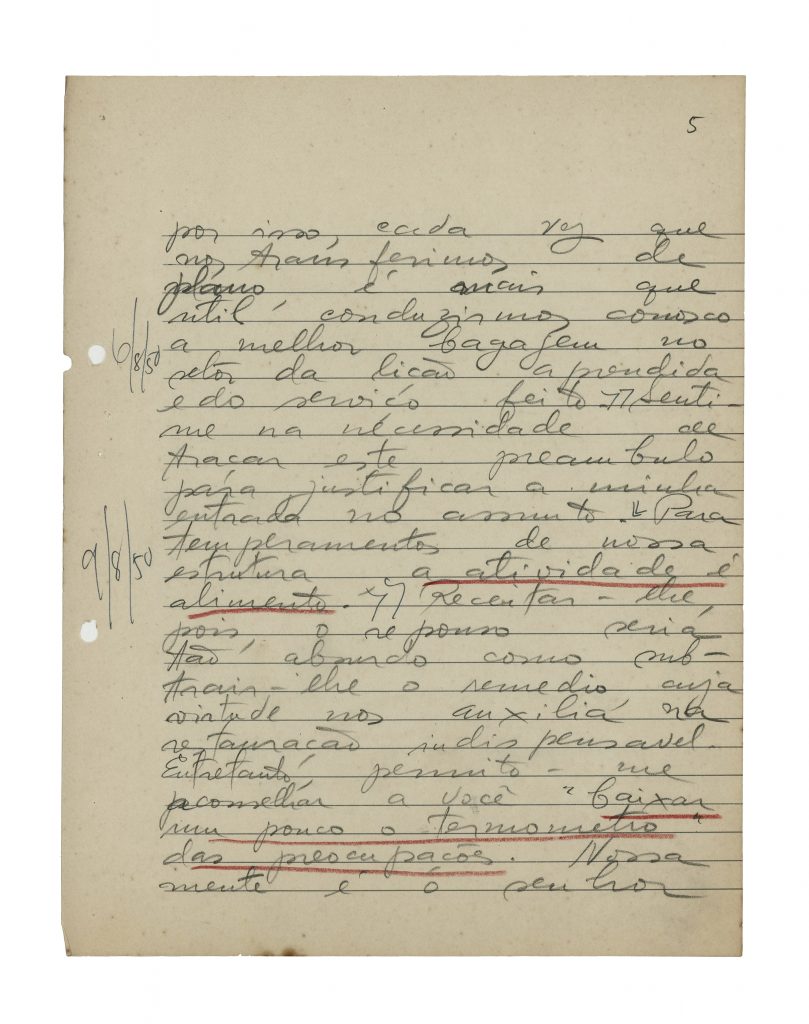 5
por isso, cada vez que
nos transferimos de
plano é mais que
util conduzirmos conosco
6/8/50
a melhor bagagem no
setor da licão aprendida
e do servićo feito. Senti-
me na necessidade de
tracar este preambulo
para justificar a minha
entrada no assunto. Para
temperamentos de nossa
9/8/50
estrutura a atividade é
alimento. Receitar-lhe,
pois, o repouso seria
tão absurdo como sub-
trair-lhe o remedio cuja
virtude nos auxilia na
restauracão indispensavel.
Entretanto, permito-me
aconselhar a você "baixar
um pouco o termometro"
das preocupacões. Nossa
mente é o senhor